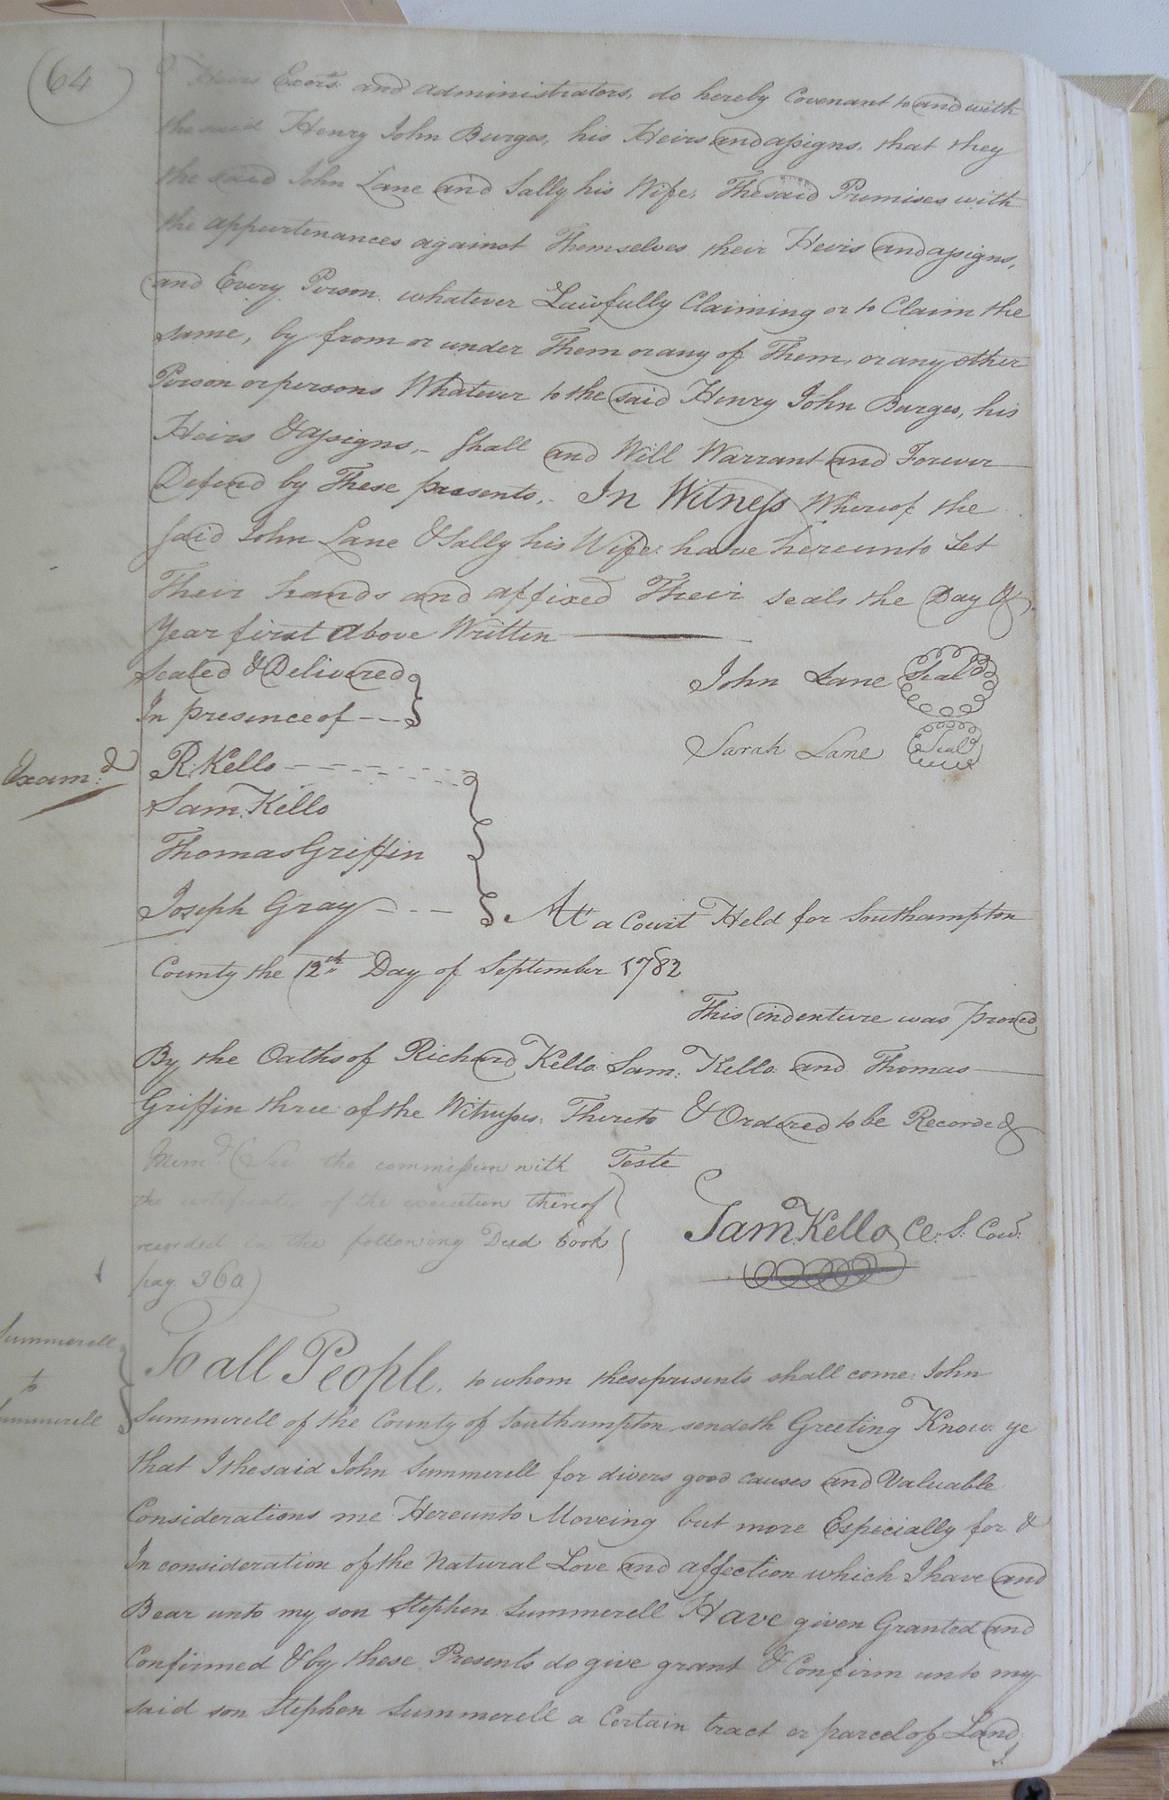 (64)
Heirs Exors. and administrators, do hereby Covenant to and with
the said Henry John Burges, his Heirs and assigns, that they
the said John Lane and Sally his Wife, The said Premises with
the appurtenances against Themselves their Heirs and assigns,
and Every Person whatever Lawfully Claiming or to Claim the
same, by from or under Them or any of Them, or any other
Person or persons Whatever to the said Henry John Burges, his
Heirs & assigns, - Shall and Will Warrant and Forever
Defend by These presents, - In Witness Whereof the
said John Lane & Sally his Wife have hereunto Set
Their hands and affixed Their seals the Day &
Year first above Written
Sealed & Delivered
In presence of
John Lane Seal'd
Sarah Lane Seal'd
Exam:d
R. Kello
Sam. Kello
Thomas Griffin
Joseph Gray
At a Court Held for Southampton
County the 12th Day of September 1782
This indenture was proved
By the Oaths of Richard Kello Sam: Kello and Thomas
Griffin three of the Witnesses Thereto & Ordered to be Recorded
Mem:d (See the commission with
the certificate of the execution thereof
recorded in the following Deed book
pag. 360)
Teste
Sam Kello Cl. S. Cou:
Summerell
to
Summerell
To all People, to whom these presents shall come John
Summerell of the County of Southampton sendeth Greeting Know ye
that I the said John Summerell for divers good causes and Valuable
Considerations me Hereunto Moveing but more Especially for &
In consideration of the Natural Love and affection which I have and
Bear unto my son Stephen Summerell Have given Granted and
Confirmed & by these Presents do give grant & Confirm unto my
said son Stephen Summerell a Certain tract or parcel of Land,